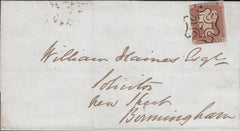 William Haines Esqre
Solicitor
New Street
Birmingham